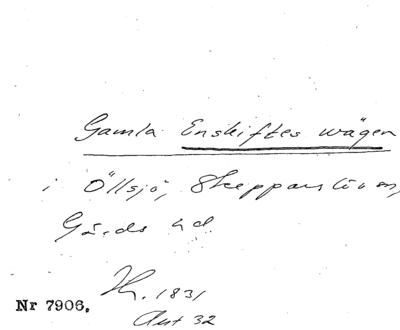 Gamla Enskiftes wägen
i Öllsjö, Skepparslöv
Gärds hd.
1831
Nr 7906.
Akt 32